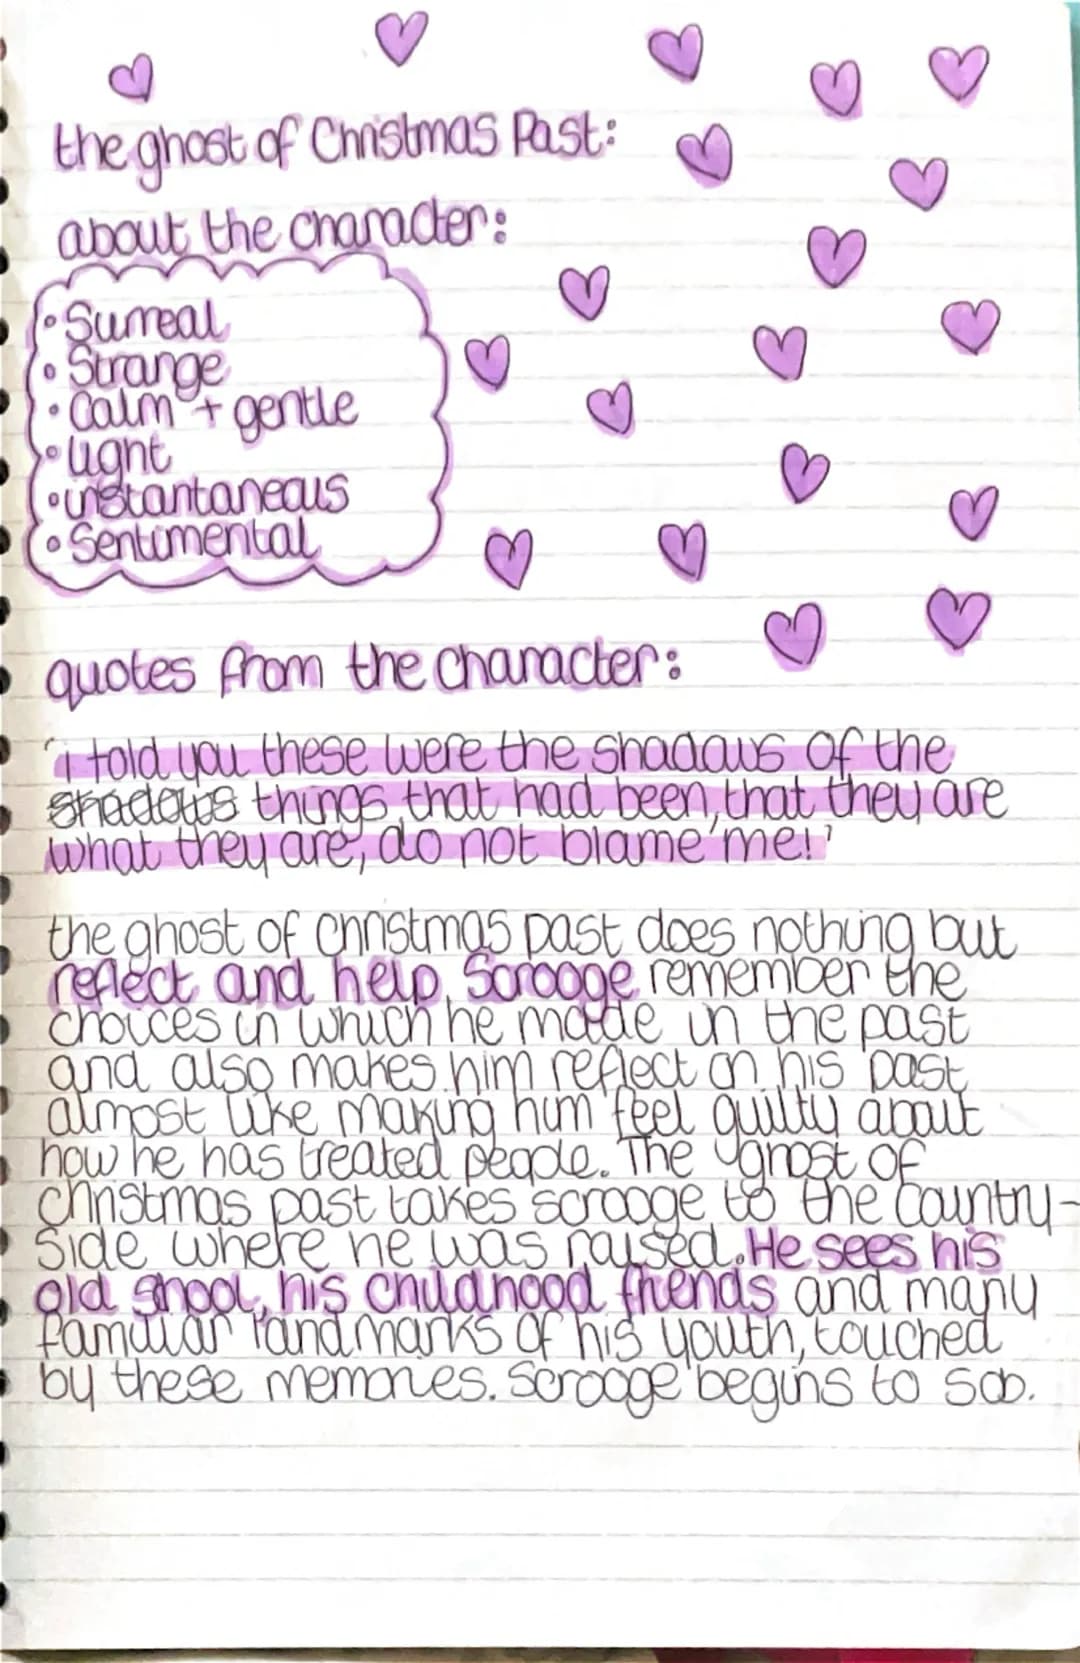 the ghost of Christmas Past:
about the character:
• Surreal
• Strange
• Calm + gentle
• light
• instantaneous
• Sentimental
quotes from the character:
"i told you these were the shadows of the
shadows things that had been, that they are
what they are, do not blame me!'
the ghost of christmas past does nothing but
reflect and help Scrooge remember the
choices in which he made in the past
and also makes him reflect on his past
almost like making him feel guilty about
how he has treated people. The ghost of
christmas past takes scrooge to the country-
side where he was raised. He sees his
old shool, his childhood friends and many
familiar landmarks of his youth, touched
by these memories. Scrooge begins to sob.